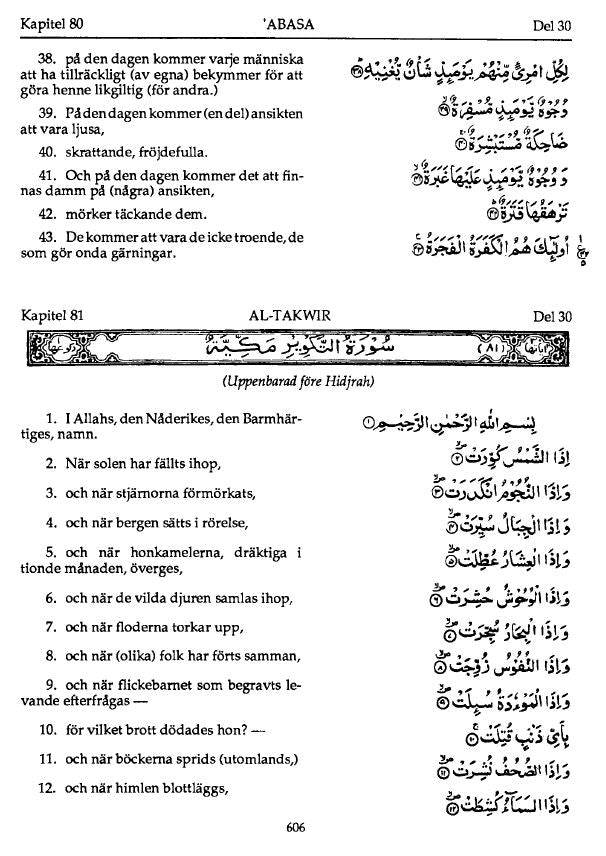 Kapitel 80 'ABASA Del 30
38. på den dagen kommer varje människa
att ha tillräckligt (av egna) bekymmer för att
göra henne likgiltig (för andra.)
لِكُلِّ امْرِئٍ مِّنْهُمْ يَوْمَئِذٍ شَأْنٌ يُّغْنِيْهِ ۝٣٨
39. På den dagen kommer (en del) ansikten
att vara ljusa,
وُجُوْهٌ يَّوْمَئِذٍ مُّسْفِرَةٌ ۝٣٩
40. skrattande, fröjdefulla.
ضَاحِكَةٌ مُّسْتَبْشِرَةٌ ۝٤٠
41. Och på den dagen kommer det att fin-
nas damm på (några) ansikten,
وَ وُجُوْهٌ يَّوْمَئِذٍ عَلَيْهَا غَبَرَةٌ ۝٤١
42. mörker täckande dem.
تَرْهَقُهَا قَتَرَةٌ ۝٤٢
43. De kommer att vara de icke troende, de
som gör onda gärningar.
أُولٰٓئِكَ هُمُ الْكَفَرَةُ الْفَجَرَةُ ۝٤٣
Kapitel 81 AL-TAKWIR Del 30
سُوْرَةُ التَّكْوِيْرِ مَكِّيَّةٌ (٨١)
(Uppenbarad före Hidjrah)
1. I Allahs, den Nåderikes, den Barmhär-
tiges, namn.
بِسْمِ اللّٰهِ الرَّحْمٰنِ الرَّحِيْمِ ۝١
2. När solen har fällts ihop,
اِذَا الشَّمْسُ كُوِّرَتْ ۝٢
3. och när stjärnorna förmörkats,
وَاِذَا النُّجُوْمُ انْكَدَرَتْ ۝٣
4. och när bergen sätts i rörelse,
وَاِذَا الْجِبَالُ سُيِّرَتْ ۝٤
5. och när honkamelerna, dräktiga i
tionde månaden, överges,
وَاِذَا الْعِشَارُ عُطِّلَتْ ۝٥
6. och när de vilda djuren samlas ihop,
وَاِذَا الْوُحُوْشُ حُشِرَتْ ۝٦
7. och när floderna torkar upp,
وَاِذَا الْبِحَارُ سُجِّرَتْ ۝٧
8. och när (olika) folk har förts samman,
وَاِذَا النُّفُوْسُ زُوِّجَتْ ۝٨
9. och när flickebarnet som begravts le-
vande efterfrågas —
وَاِذَا الْمَوْءٗدَةُ سُئِلَتْ ۝٩
10. för vilket brott dödades hon? —
بِاَيِّ ذَنْۢبٍ قُتِلَتْ ۝١٠
11. och när böckerna sprids (utomlands,)
وَاِذَا الصُّحُفُ نُشِرَتْ ۝١١
12. och när himlen blottläggs,
وَاِذَا السَّمَآءُ كُشِطَتْ ۝١٢
606